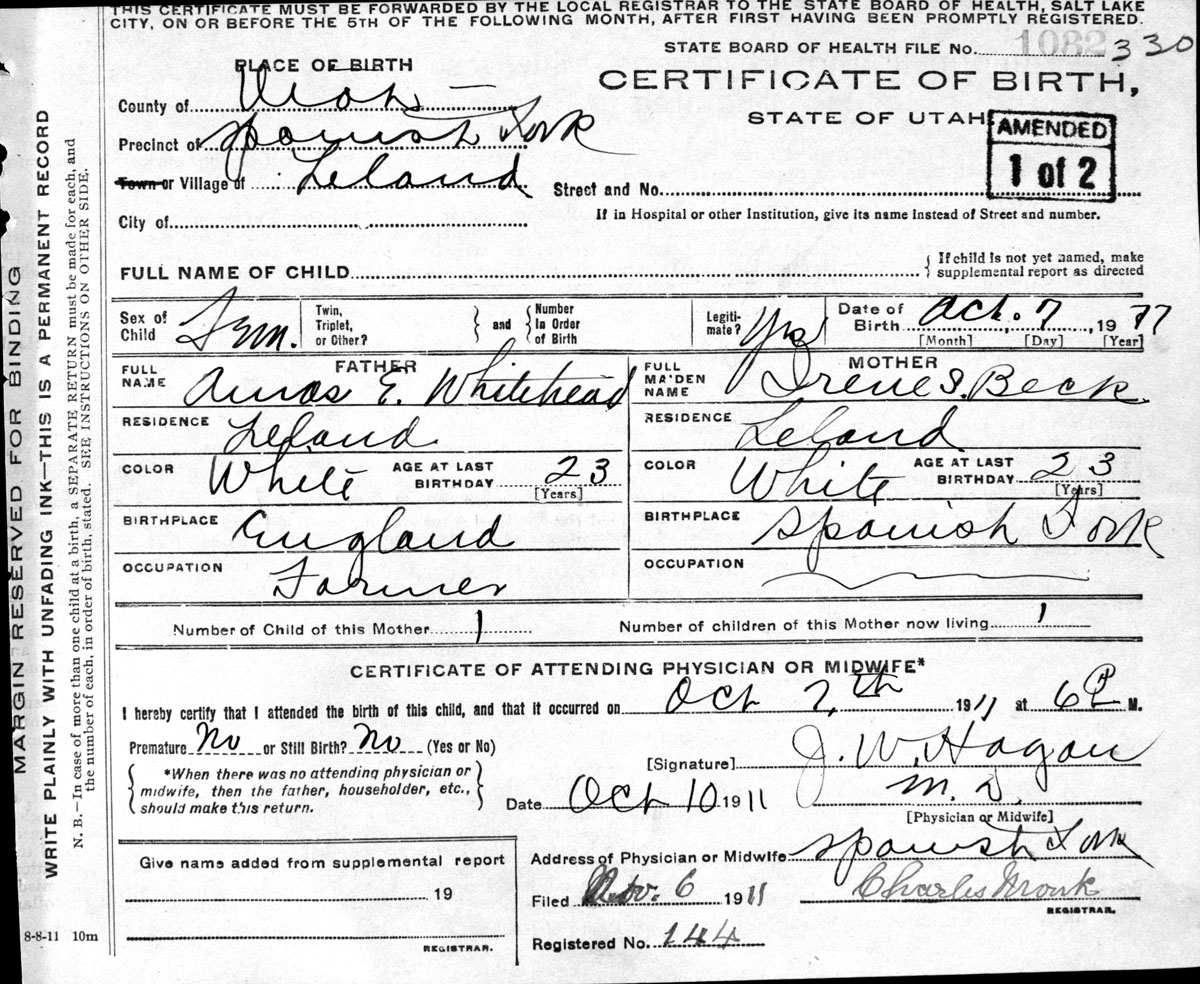 THIS CERTIFICATE MUST BE FORWARDED BY THE LOCAL REGISTRAR TO THE STATE BOARD OF HEALTH, SALT LAKE
CITY, ON OR BEFORE THE 5TH OF THE FOLLOWING MONTH, AFTER FIRST HAVING BEEN PROMPTLY REGISTERED.
STATE BOARD OF HEALTH FILE No. 1082 330
PLACE OF BIRTH
CERTIFICATE OF BIRTH,
County of Utah
STATE OF UTAH
AMENDED
1 of 2
Precinct of Spanish Fork
Town or Village of Leland
Street and No.
City of
If in Hospital or other Institution, give its name instead of Street and number.
FULL NAME OF CHILD
{ If child is not yet named, make
supplemental report as directed
Sex of Child Fem.
Twin, Triplet, or Other? } and { Number In Order of Birth
Legiti-mate? Yes
Date of Birth Oct. 7, 1911
[Month] [Day] [Year]
FATHER
FULL NAME Amos E. Whitehead
MOTHER
FULL MAIDEN NAME Irene S. Beck
RESIDENCE Leland
RESIDENCE Leland
COLOR White AGE AT LAST BIRTHDAY 23 [Years]
COLOR White AGE AT LAST BIRTHDAY 23 [Years]
BIRTHPLACE England
BIRTHPLACE Spanish Fork
OCCUPATION Farmer
OCCUPATION
Number of Child of this Mother 1
Number of children of this Mother now living 1
CERTIFICATE OF ATTENDING PHYSICIAN OR MIDWIFE*
I hereby certify that I attended the birth of this child, and that it occurred on Oct 7th 1911 at 6 P M.
Premature No or Still Birth? No (Yes or No)
{ *When there was no attending physician or
midwife, then the father, householder, etc.,
should make this return. }
[Signature] J. W. Hagan
M. D.
Date Oct 10 1911
[Physician or Midwife]
Give name added from supplemental report
19
REGISTRAR.
Address of Physician or Midwife Spanish Fork
Filed Nov. 6 1911
Charles Monk
REGISTRAR.
Registered No. 144
8-8-11 10m
MARGIN RESERVED FOR BINDING
WRITE PLAINLY WITH UNFADING INK—THIS IS A PERMANENT RECORD
N. B.—In case of more than one child at a birth, a SEPARATE RETURN must be made for each, and
the number of each, in order of birth, stated. SEE INSTRUCTIONS ON OTHER SIDE.